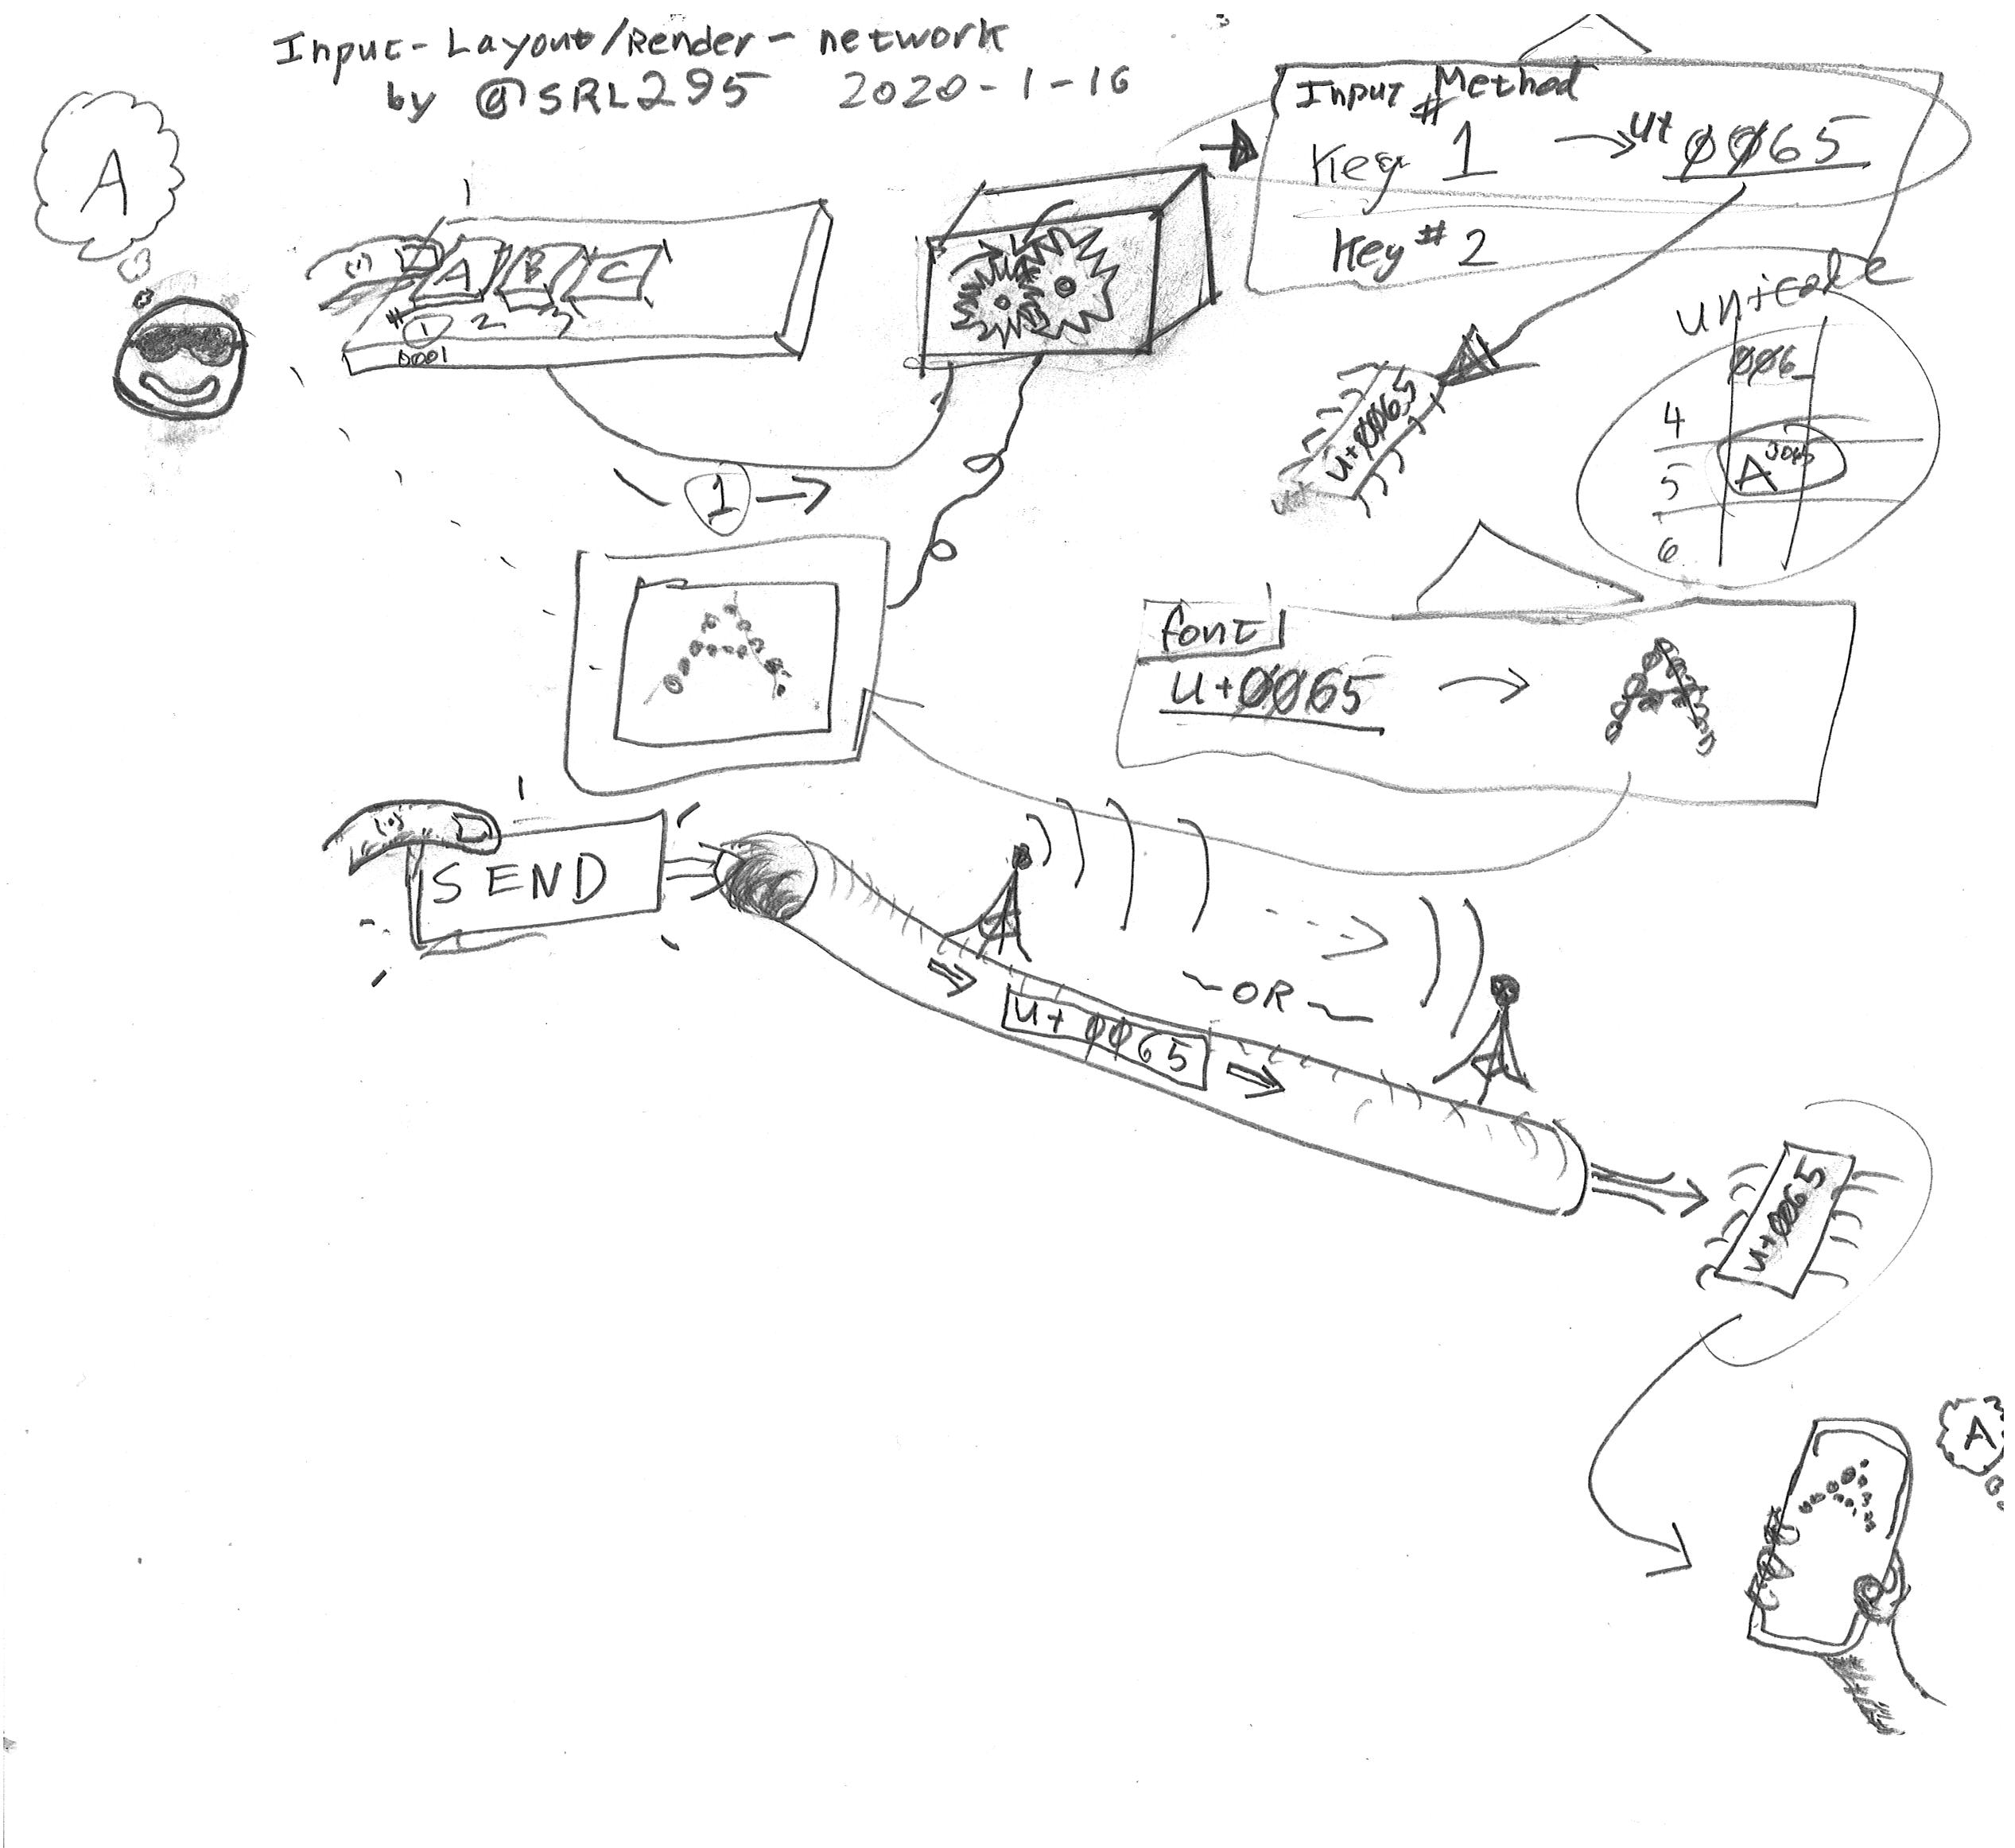 Input-Layout/Render-network
by @SRL295 2020-1-16
A
A B C
# 1 2 3
0001
Input Method
Key #1 → U+0065
Key #2
1 →
U+0065
Unicode
006_
4
5 A 0065
6
font
U+0065 →
SEND
~OR~
U+0065
U+0065
A